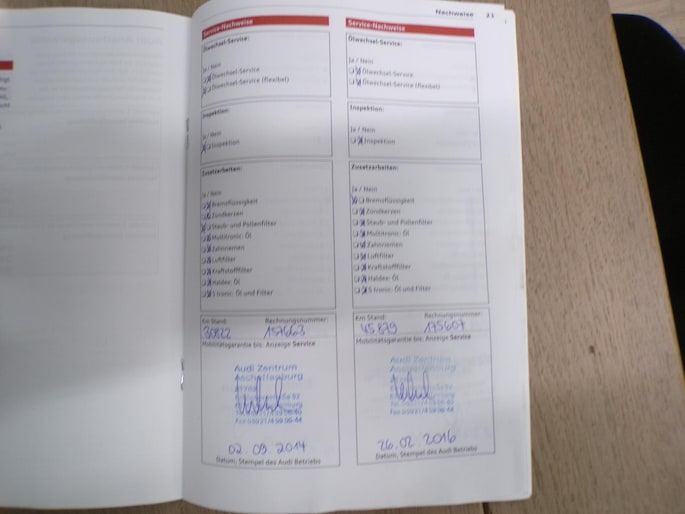 Nachweise 21
Service-Nachweise
Ölwechsel-Service:
Ja / Nein
Ölwechsel-Service
Ölwechsel-Service (flexibel)
Inspektion:
Ja / Nein
Inspektion
Zusatzarbeiten:
Ja / Nein
Bremsflüssigkeit
Zündkerzen
Staub- und Pollenfilter
Multitronic: Öl
Zahnriemen
Luftfilter
Kraftstofffilter
Haldex: Öl
S tronic: Öl und Filter
Km Stand: Rechnungsnummer:
30822 157663
Mobilitätsgarantie bis: Anzeige Service
Audi Zentrum
Aschaffenburg
02.09.2014
Datum, Stempel des Audi Betriebs
Service-Nachweise
Ölwechsel-Service:
Ja / Nein
Ölwechsel-Service
Ölwechsel-Service (flexibel)
Inspektion:
Ja / Nein
Inspektion
Zusatzarbeiten:
Ja / Nein
Bremsflüssigkeit
Zündkerzen
Staub- und Pollenfilter
Multitronic: Öl
Zahnriemen
Luftfilter
Kraftstofffilter
Haldex: Öl
S tronic: Öl und Filter
Km Stand: Rechnungsnummer:
45879 175607
Mobilitätsgarantie bis: Anzeige Service
Audi Zentrum
Aschaffenburg
26.02.2016
Datum, Stempel des Audi Betriebs